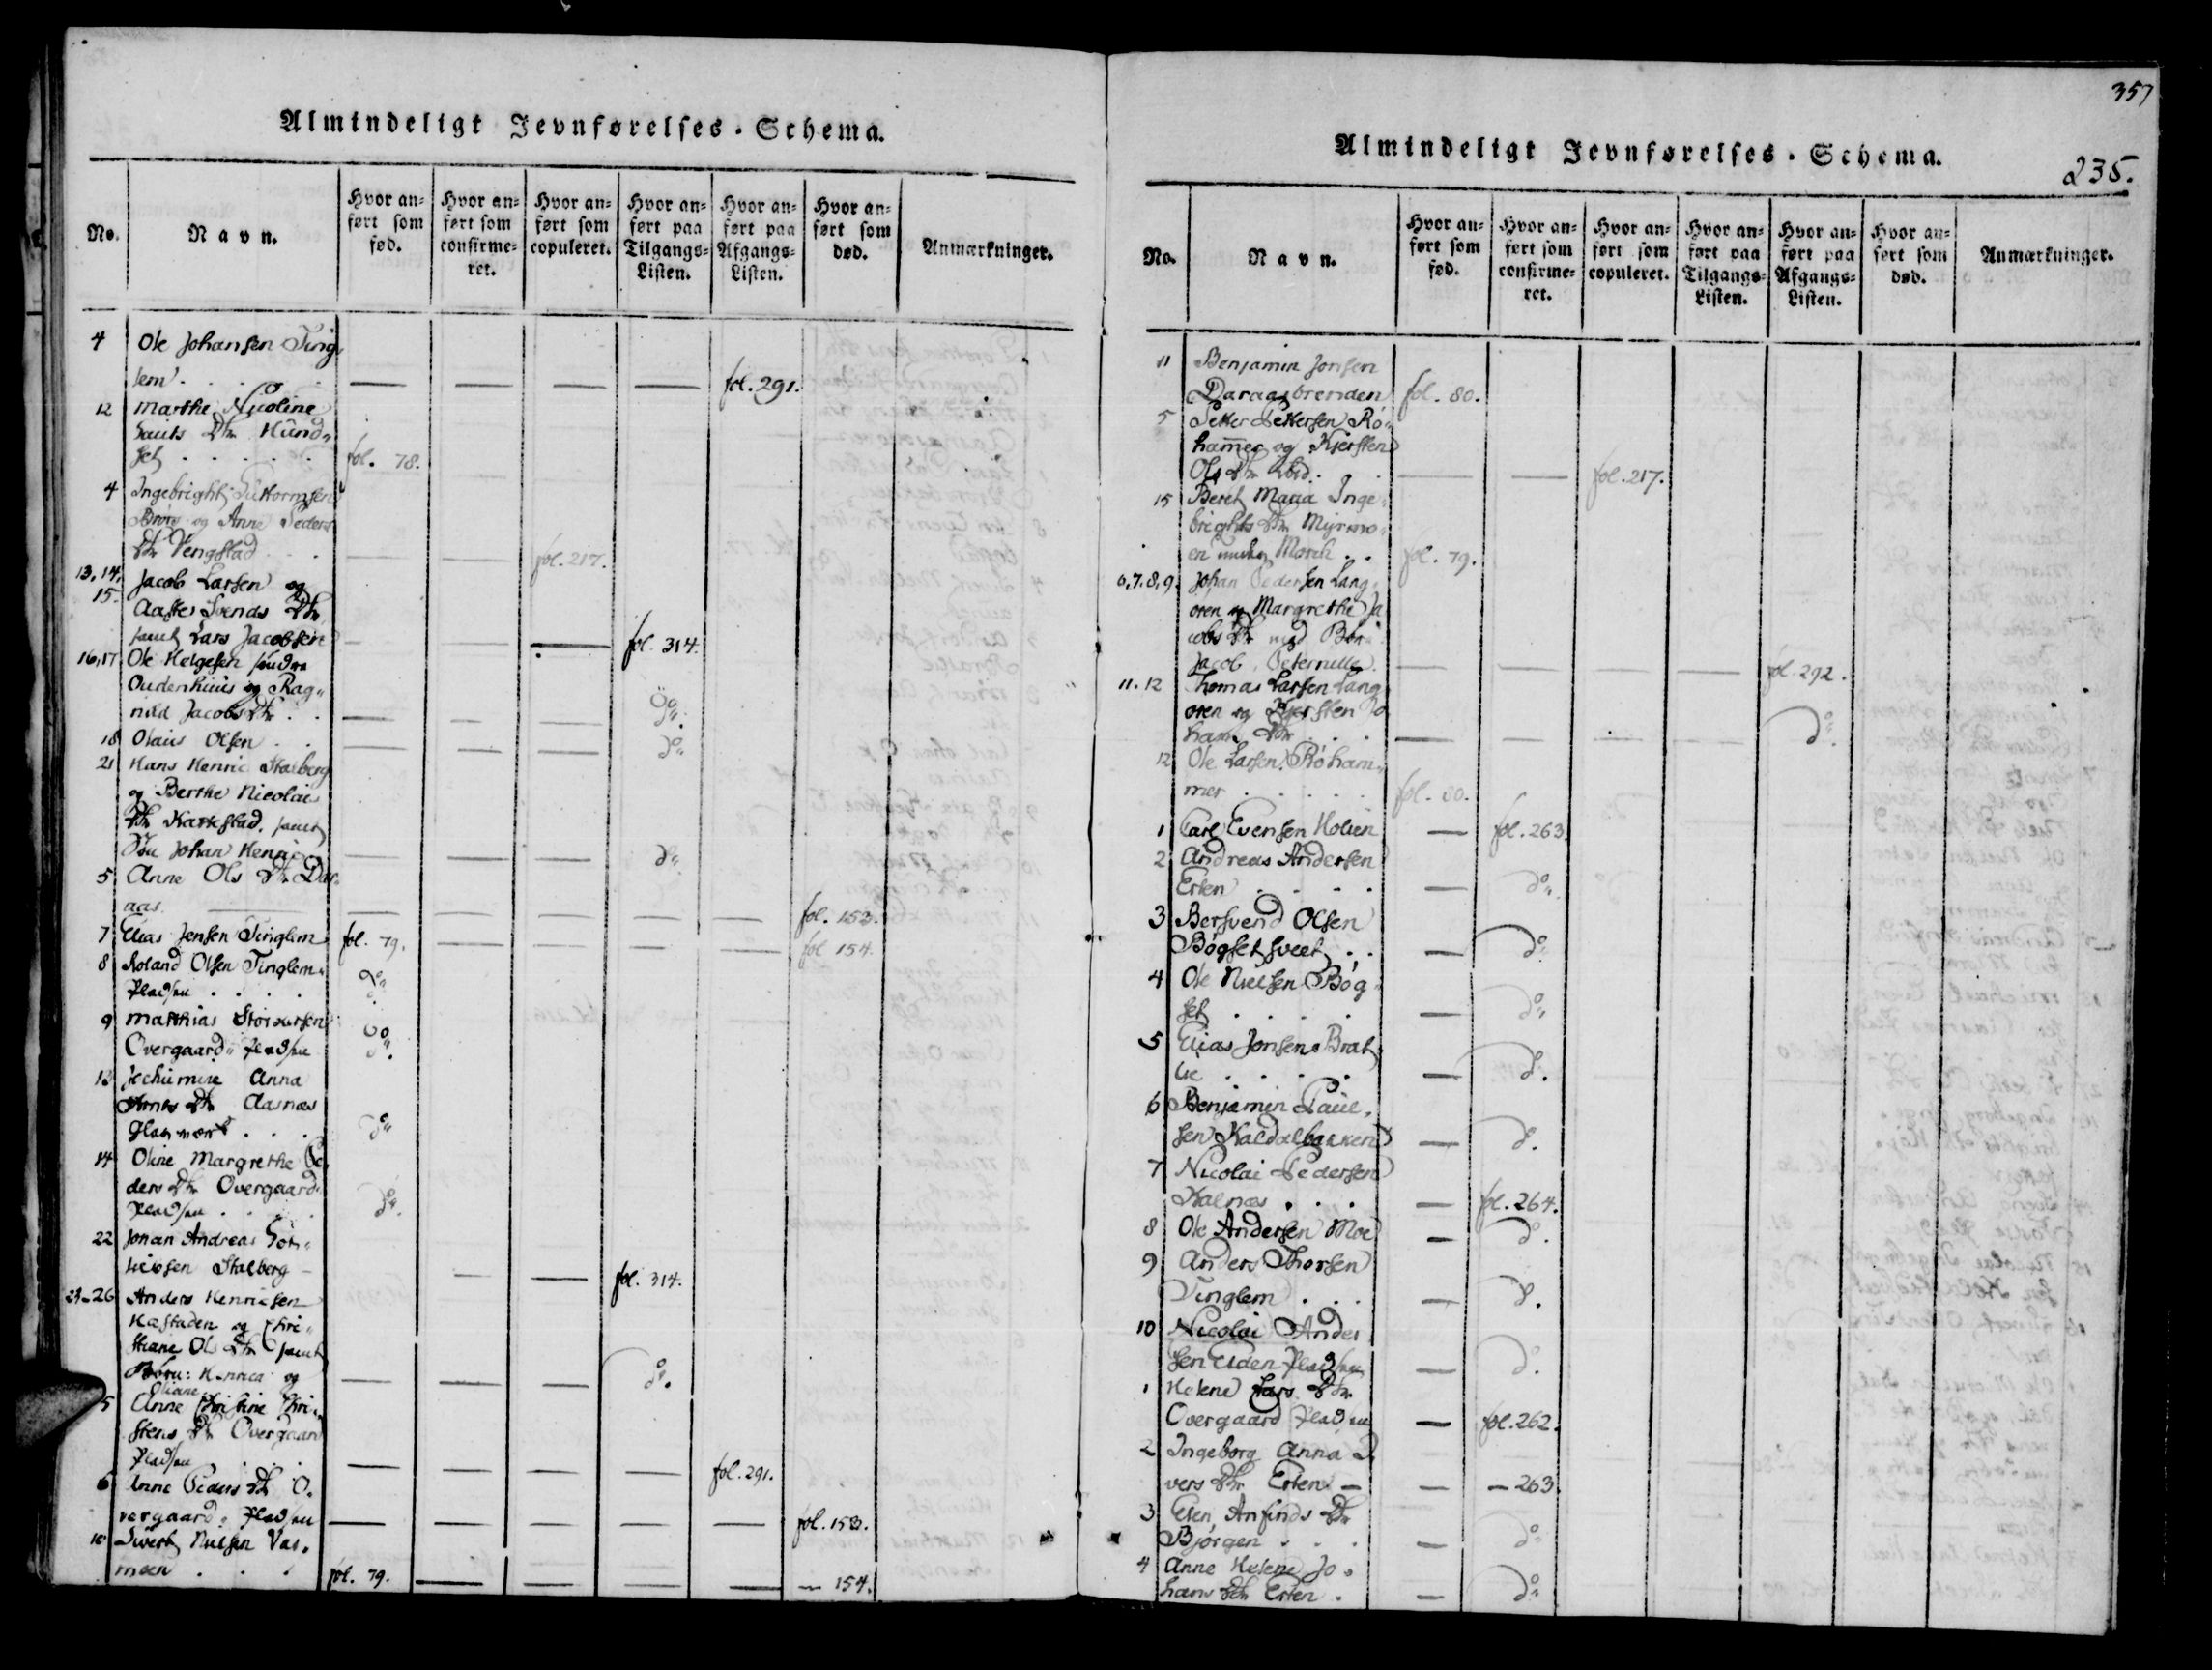 Almindeligt Jevnførelses-Schema.
No. Navn. Hvor anført som fød. Hvor anført som confirmeret. Hvor anført som copuleret. Hvor anført paa Tilgangs-Listen. Hvor anført paa Afgangs-Listen. Hvor anført som død. Anmærkninger.
4 Ole Johansen Ting
lem . . . — — — — fol. 291.
12 Marthe Nicoline
Dtr Hund„
set . . . . fol. 78.
4 Ingebright Guttormsen
Brørs og Anne Peders
Dtr Vengstad . . — — fol. 217.
13, 14, Jacob Larsen og
15. Aaste Svends Dtr
samt Lars Jacobsen — — — fol. 314.
16, 17 Ole Helgesen
Oudenhuus og Rag„
nild Jacobs Dtr . . — — — do
18 Olaus Olsen . . — — — do
21 Hans Henric Stalberg
og Berthe Nicolai
Dtr Karkstad, samt
Søn Johan Henric — — — do
5 Anne Ols Dtr Dar
aas — — — — — fol. 153.
7 Elias Jensen Tinglem fol. 79. — — — — fol 154.
8 Roland Olsen Tinglem„
Pladsen . . . . do
9 Matthias
Overgaards Pladsen do
13 Jechumine Anna
Arnts Dtr Aasnæs
Glasværk . . . do
14 Oline Margrethe Pe
ders Dtr Overgaards
Pladsen . . . . do
22 Johan Andreas Got„
Stalberg — — — fol. 314.
23-26 Anders Henricsen
Kastaden og Chri„
stiane Ols Dtr samt
Børn: Henrica og
Oliane — — — do
5 Anne Christine Chri„
stens Dtr Overgaard
Pladsen . . . — — — — fol. 291.
6 Anne Peders Dtr O„
vergaard„ Pladsen — — — — — fol. 153.
10 Sivert Nielsen Vas„
moen . . . fol. 79. — — — — — 154.
357
Almindeligt Jevnførelses-Schema.
235.
No. Navn. Hvor anført som fød. Hvor anført som confirmeret. Hvor anført som copuleret. Hvor anført paa Tilgangs-Listen. Hvor anført paa Afgangs-Listen. Hvor anført som død. Anmærkninger.
11 Benjamin Jonsen
Daraasbrenden fol. 80.
5 Petter Pettersen Rø„
hammer og Kjersten
Ols Dtr ibid. . . — — fol. 217.
15 Beret Maria Inge„
brights Dtr Myrmo„
en March . . fol. 79.
6, 7. 8, 9. Johan Pedersen Lang„
øren og Margrethe Ja
cobs Dtr med Børn
Jacob, Peternille. — — — — fol. 292.
11. 12 Thomas Larsen Lang
øren og Kjersten Jo
hans Dtr . . . — — — — do.
12 Ole Larsen Røham„
mer . . . . . fol. 80.
1 Carl Evensen Holien — fol. 263.
2 Andreas Andersen
Erten . . . . — do
3 Bersvend Olsen
Bøgsetsveet . . — do
4 Ole Nielsen Bøg„
set . . . . . — do
5 Elias Jonsen Brat„
lie . . . . . — do.
6 Benjamin Paul„
sen Kaldalbakken — do.
7 Nicolai Pedersen
Kalnæs . . . . — fol. 264.
8 Ole Andersen Moe — do.
9 Anders Thorsen
Tinglem . . . — do.
10 Nicolai Ander
sen Eiden Pladsen — do.
1 Helene Lars Dtr
Overgaard Pladsen — fol. 262.
2 Ingeborg Anna I„
vers Dtr Erten — — — 263.
3 Elen Anfinds Dtr
Bjørgen . . . — do
4 Anne Helene Jo„
hans Dtr Erten . — do